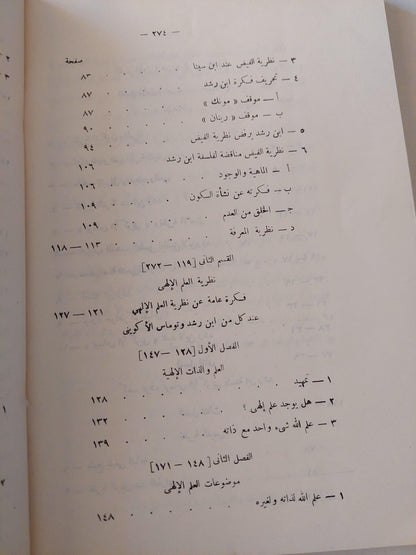 — ٢٧٤ —
صفحة
٣ — نظرية الفيض عند ابن سينا . . . . . ٨٣
٤ — تحريف فكرة ابن رشد . . . . . ٨٧
أ — موقف « مونك » . . . . . ٨٧
ب — موقف « رينان » . . . . . ٩٠
٥ — ابن رشد يرفض نظرية الفيض . . . . . ٩٤
٦ — نظرية الفيض مناقضة لفلسفة ابن رشد . . . ١٠٦
أ — الماهية والوجود . . . . . ١٠٦
ب — فكرته عن نشأة الكون . . . . . ١٠٩
ج — الخلق من العدم . . . . . ١٠٩
د — نظرية المعرفة . . . . . ١١٣ — ١١٨
القسم الثانى [ ١١٩ — ٢٧٢ ]
نظرية العلم الإلهى
فكرة عامة عن نظرية العلم الإلهى ١٢١ — ١٢٧
عند كل من ابن رشد وتوماس الأكوينى
الفصل الأول [ ١٢٨ — ١٤٧ ]
العلم والذات الإلهية
١ — تمهيد . . . . . ١٢٨
٢ — هل يوجد علم إلهى ؟ . . . . . ١٣٢
٣ — علم الله شىء واحد مع ذاته . . . . . ١٣٩
الفصل الثانى [ ١٤٨ — ١٧١ ]
موضوعات العلم الإلهى
١ — علم الله لذاته ولغيره . . . . . ١٤٨